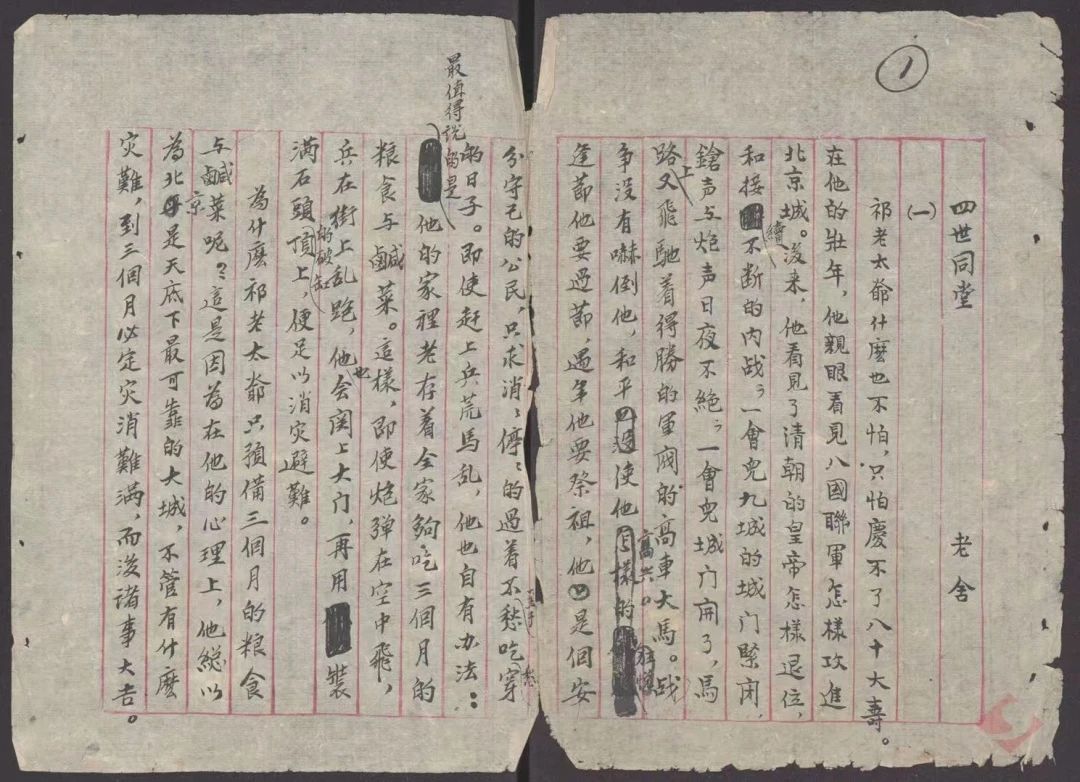 1
四世同堂　老舍
(一)
祁老太爺什麽也不怕，只怕慶不了八十大壽。
在他的壯年，他親眼看見八國聯軍怎樣攻進
北京城。後来，他看見了清朝的皇帝怎樣退位，
和接續不断的内战；一會兒九城的城门緊闭，
鎗声与炮声日夜不絕；一會兒城门開了，馬
路上又飛馳着得勝的軍阀的高車大馬。战
争没有嚇倒他，和平使他高兴。
逢節他要過節，過年他要祭祖，他是個安
分守己的公民，只求消消停停的過着不愁吃穿
的日子。即使赶上兵荒馬乱，他也自有办法：
最值得说的是他的家裡老存着全家夠吃三個月的
粮食与鹹菜。這樣，即使炮弹在空中飛，
兵在街上乱跑，他也会関上大门，再用裝
满石頭的破缸頂上，便足以消灾避難。
為什麽祁老太爺只預備三個月的粮食
与鹹菜呢？這是因為在他的心理上，他総以
為北京是天底下最可靠的大城，不管有什麽
灾難，到三個月必定灾消難满，而後诸事大吉。